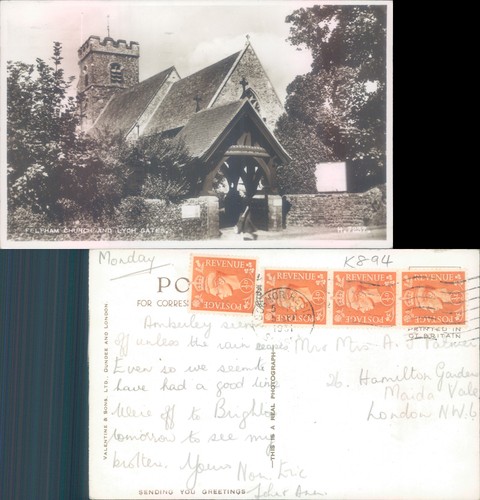 FELPHAM CHURCH AND LYCH GATES.
Monday
K894
PO
FOR CORRES
REVENUE
POSTAGE
REVENUE
POSTAGE
REVENUE
POSTAGE
REVENUE
POSTAGE
1951
PRINTED IN
GT BRITAIN
Amberley seems
off unless the rain
Even so we seem to
have had a good time
Were off to Brighton
tomorrow to see my
brother. Yours
Mr & Mrs A. J.
26. Hamilton Gardens
Maida Vale
London N.W.
VALENTINE & SONS, LTD., DUNDEE AND LONDON
THIS IS A REAL PHOTOGRAPH
SENDING YOU GREETINGS